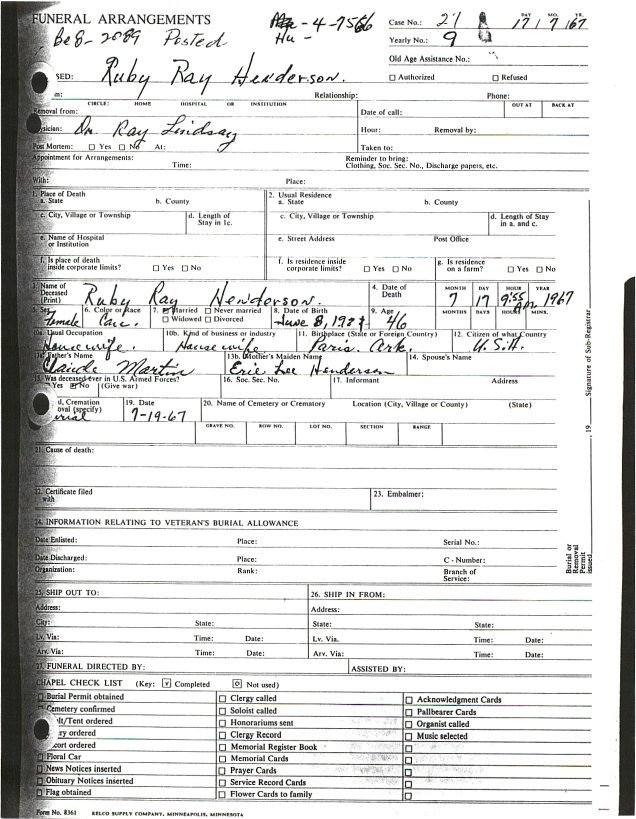 FUNERAL ARRANGEMENTS
Case No.: 21
DAY MO. YR.
17 / 7 / 67
Be 8-2089 Posted
Hu-
Yearly No.: 9
Old Age Assistance No.:
SED: Ruby Ray Henderson.
Authorized Refused
m: Relationship: Phone:
CIRCLE: HOME HOSPITAL OR INSTITUTION
OUT AT BACK AT
Removal from: Date of call:
sician: Dr. Ray Lindsay
Hour: Removal by:
Post Mortem: Yes No At: Taken to:
Appointment for Arrangements: Time:
Reminder to bring:
Clothing, Soc. Sec. No., Discharge papers, etc.
With: Place:
1. Place of Death
a. State b. County
2. Usual Residence
a. State b. County
c. City, Village or Township
d. Length of Stay in 1c.
c. City, Village or Township
d. Length of Stay in a. and c.
e. Name of Hospital or Institution
e. Street Address Post Office
f. Is place of death inside corporate limits? Yes No
f. Is residence inside corporate limits? Yes No
g. Is residence on a farm? Yes No
3. Name of Deceased (Print) Ruby Ray Henderson.
4. Date of Death
MONTH DAY HOUR YEAR
7 17 9:55 1967
5. Sex Female
6. Color or Race Cau.
7. Married Never married
Widowed Divorced
8. Date of Birth June 8, 1921
9. Age 46
MONTHS DAYS HOURS MINS.
10a. Usual Occupation Housewife.
10b. Kind of business or industry Housewife.
11. Birthplace (State or Foreign Country) Paris, Ark.
12. Citizen of what Country U.S.A.
13a. Father's Name Claude Martin
13b. Mother's Maiden Name Eric Lee Henderson
14. Spouse's Name
15. Was deceased ever in U.S. Armed Forces?
Yes No (Give war)
16. Soc. Sec. No.
17. Informant Address
l, Cremation
oval (specify)
urial
19. Date 7-19-67
20. Name of Cemetery or Crematory Location (City, Village or County) (State)
GRAVE NO. ROW NO. LOT NO. SECTION RANGE
21. Cause of death:
22. Certificate filed with
23. Embalmer:
24. INFORMATION RELATING TO VETERAN'S BURIAL ALLOWANCE
Date Enlisted: Place: Serial No.:
Date Discharged: Place: C - Number:
Organization: Rank: Branch of Service:
25. SHIP OUT TO:
26. SHIP IN FROM:
Address: Address:
City: State: State: State:
Lv. Via: Time: Date: Lv. Via. Time: Date:
Arv. Via: Time: Date: Arv. Via: Time: Date:
27. FUNERAL DIRECTED BY: ASSISTED BY:
CHAPEL CHECK LIST (Key: V Completed O Not used)
Burial Permit obtained Clergy called Acknowledgment Cards
Cemetery confirmed Soloist called Pallbearer Cards
lt/Tent ordered Honorariums sent Organist called
ry ordered Clergy Record Music selected
cort ordered Memorial Register Book
Floral Car Memorial Cards
News Notices inserted Prayer Cards
Obituary Notices inserted Service Record Cards
Flag obtained Flower Cards to family
Form No. 8361 KELCO SUPPLY COMPANY, MINNEAPOLIS, MINNESOTA
Burial or Removal Permit issued , 19 Signature of Sub-Registrar